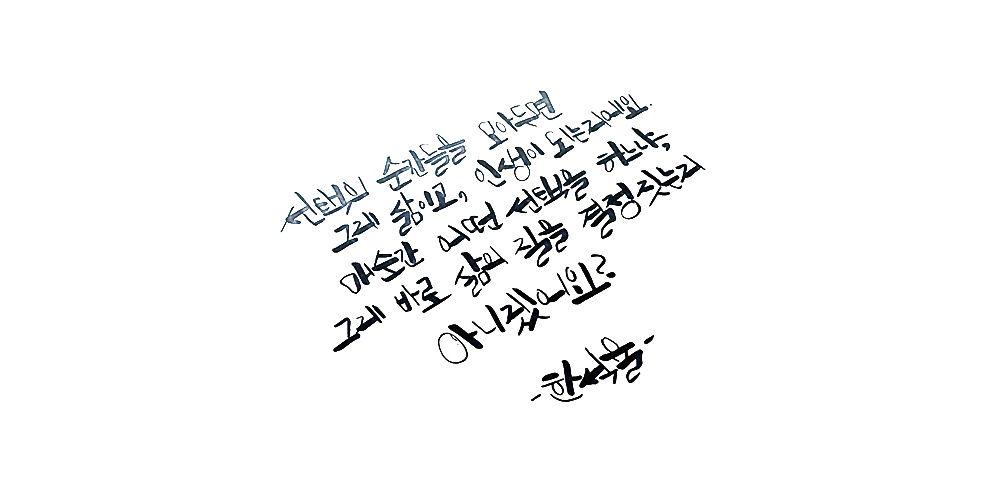 선택의 순간들을 모아두면
그게 삶이고, 인생이 되는거예요.
매순간 어떤 선택을 하느냐,
그게 바로 삶의 질을 결정짓는거
아니겠어요?
-한석율-